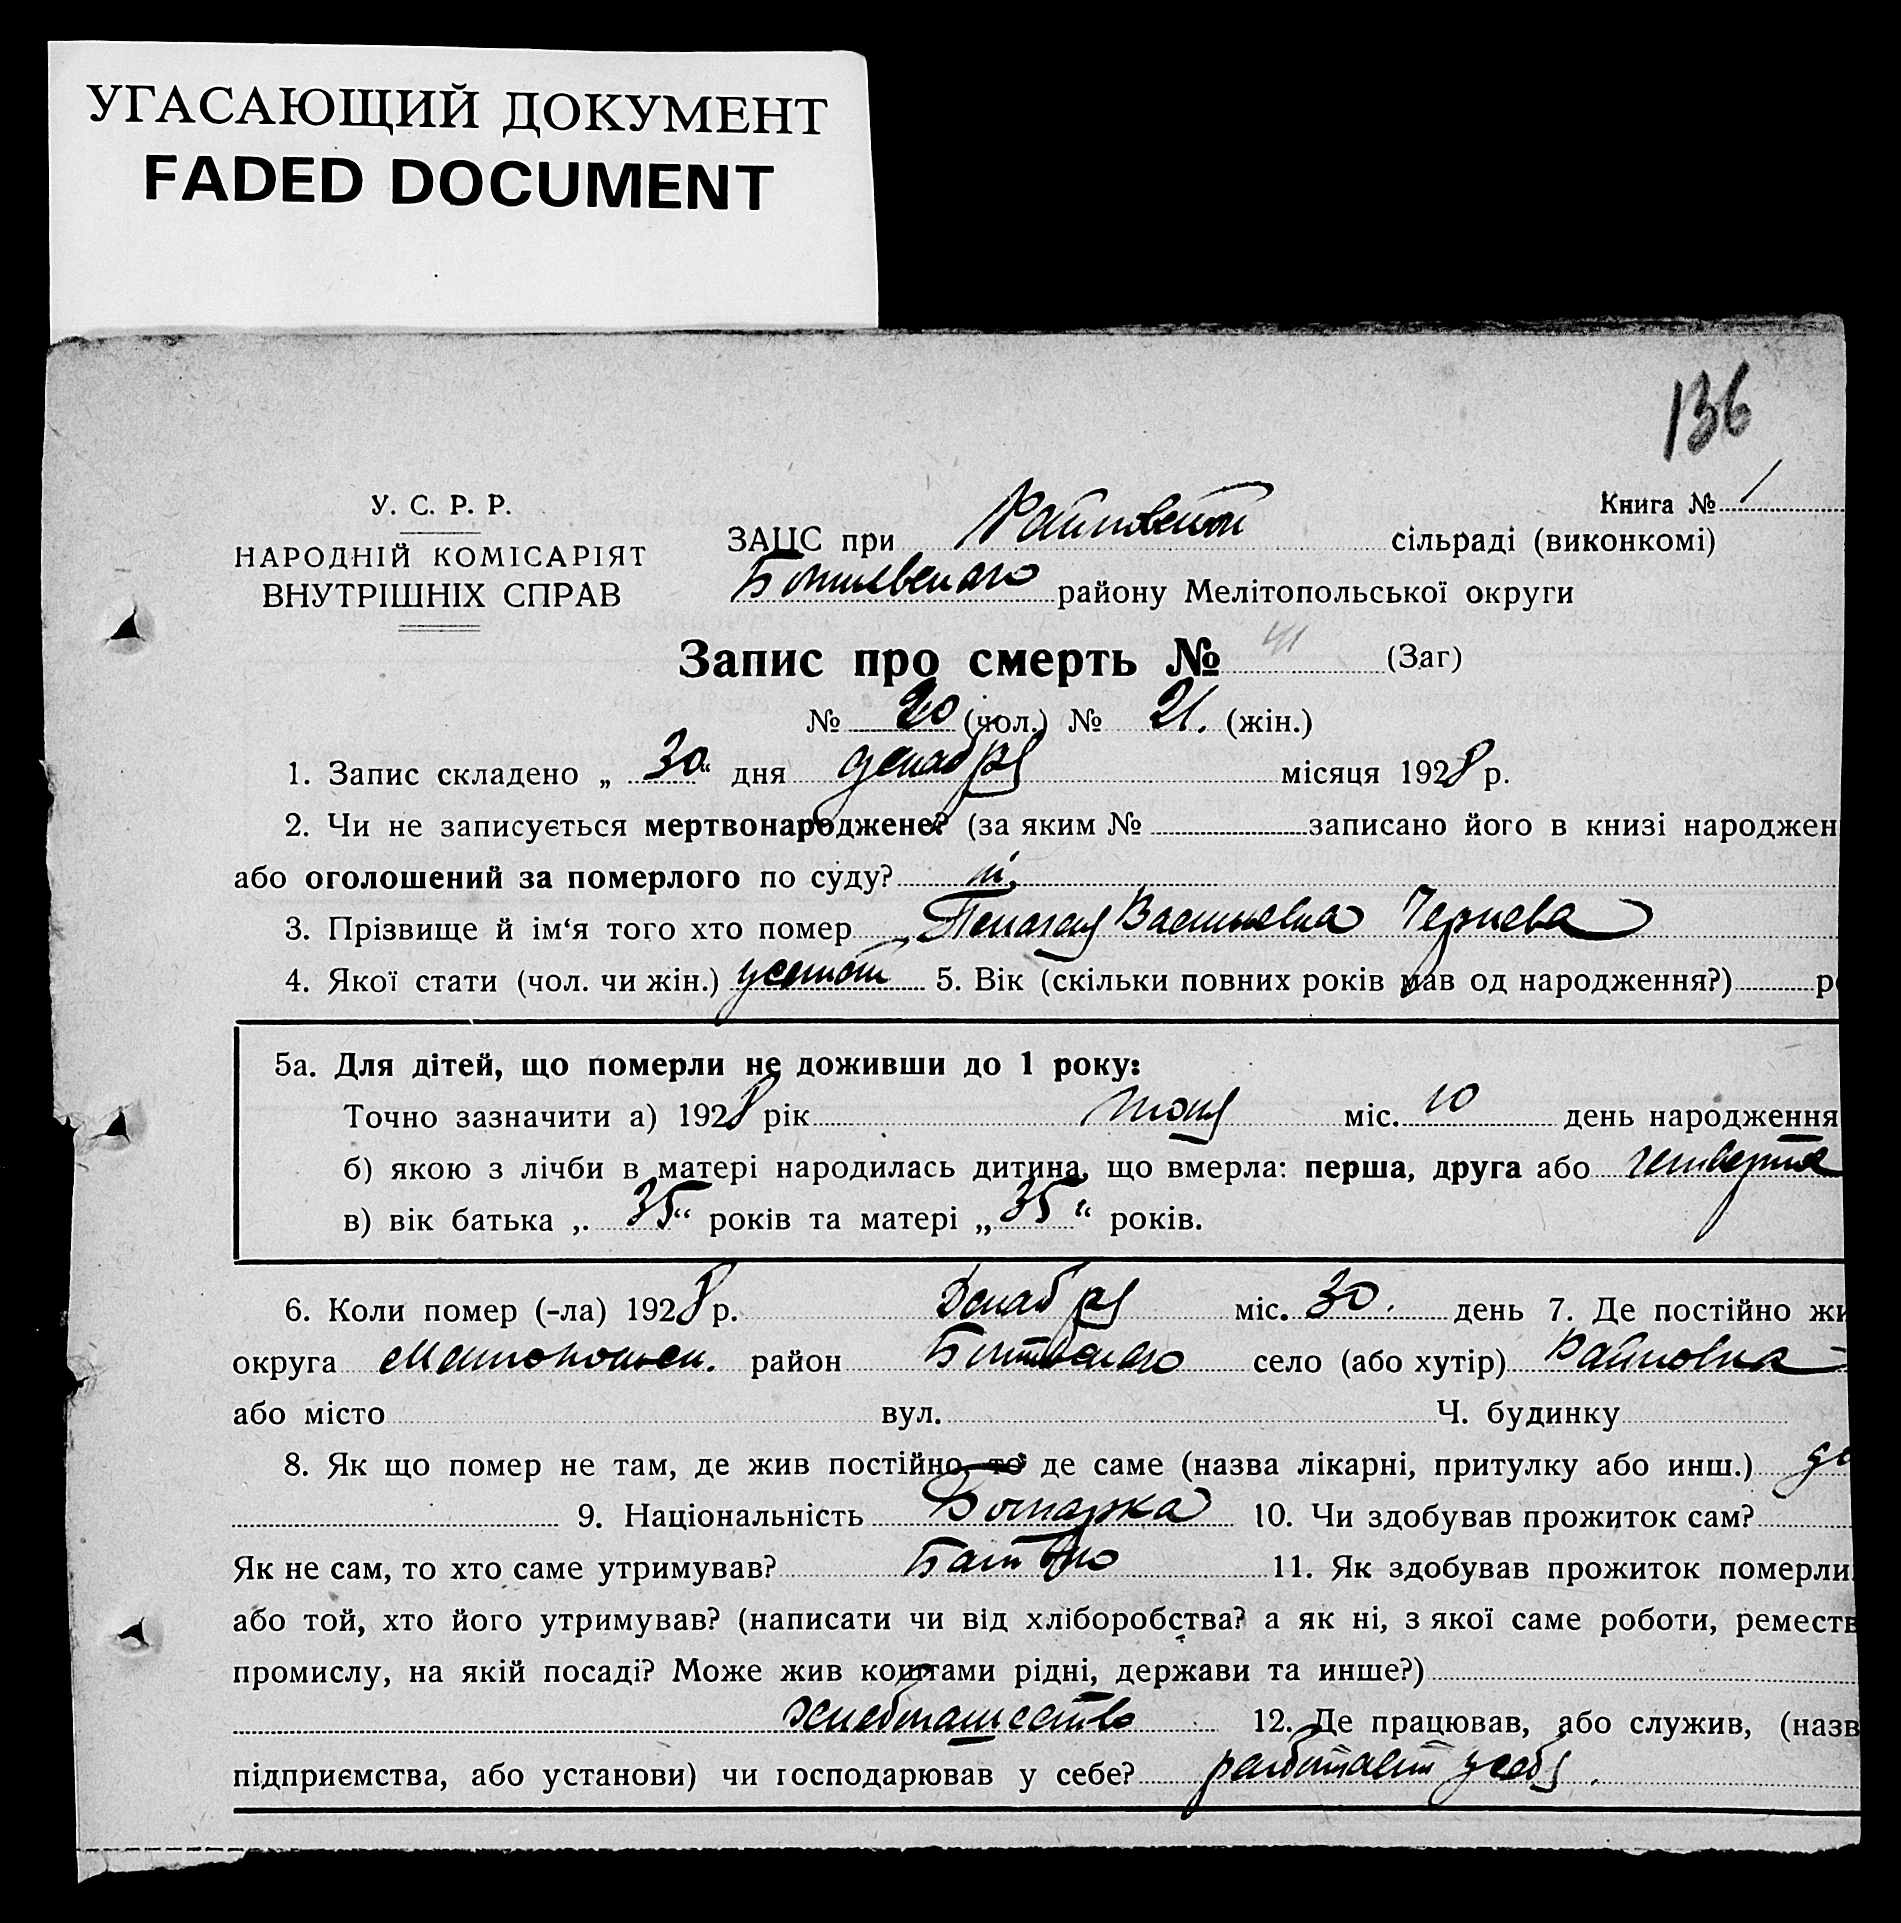 УГАСАЮЩИЙ ДОКУМЕНТ
FADED DOCUMENT
136
У. С. Р. Р.
НАРОДНІЙ КОМІСАРІЯТ
ВНУТРІШНІХ СПРАВ
Книга № 1
ЗАЦС при сільраді (виконкомі)
району Мелітопольської округи
Запис про смерть № 41 (Заг)
№ 20 (чол.) № 21. (жін.)
1. Запис складено „ 30 “ дня декабря місяця 1928 р.
2. Чи не записується мертвонароджене? (за яким № записано його в книзі народжен
або оголошений за померлого по суду? ні.
3. Прізвище й ім‘я того хто помер Пелагея Васильевна Чернева
4. Якої стати (чол. чи жін.) 5. Вік (скільки повних років мав од народження?) р
5а. Для дітей, що померли не доживши до 1 року:
Точно зазначити а) 1928 рік міс. 10 день народження
б) якою з лічби в матері народилась дитина, що вмерла: перша, друга або четвертая
в) вік батька „ 35 “ років та матері „ 35 “ років.
6. Коли помер (-ла) 1928 р. Декабря міс. 30. день 7. Де постійно жи
округа Мелитопольск. район село (або хутір) Райновка
або місто вул. Ч. будинку
8. Як що помер не там, де жив постійно, то де саме (назва лікарні, притулку або инш.)
9. Національність Болгарка 10. Чи здобував прожиток сам?
Як не сам, то хто саме утримував? Батько 11. Як здобував прожиток померли
або той, хто його утримував? (написати чи від хліборобства? а як ні, з якої саме роботи, реместв
промислу, на якій посаді? Може жив коштами рідні, держави та инше?)
хлебопашество 12. Де працював, або служив, (назв
підприємства, або установи) чи господарював у себе? работает у себя.